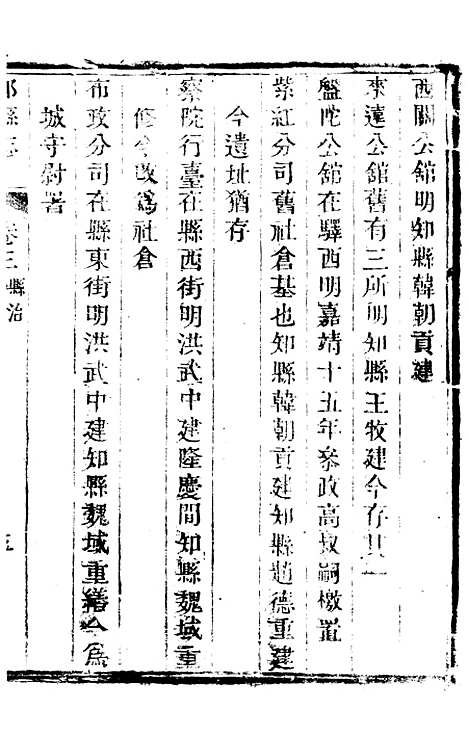 西關公館明知縣韓朝貢建
來遠公館舊有三所明知縣王牧建今存其一
盤陀公館在驛西明嘉靖十五年參政高叔嗣檄置
紫紅分司舊社倉基也知縣韓朝貢建知縣趙德重建
今遺址猶存
察院行臺在縣西街明洪武中建隆慶間知縣魏域重
修今改爲社倉
布政分司在縣東街明洪武中建知縣魏域重繕今爲
城守尉署
縣志 卷三 縣治 五